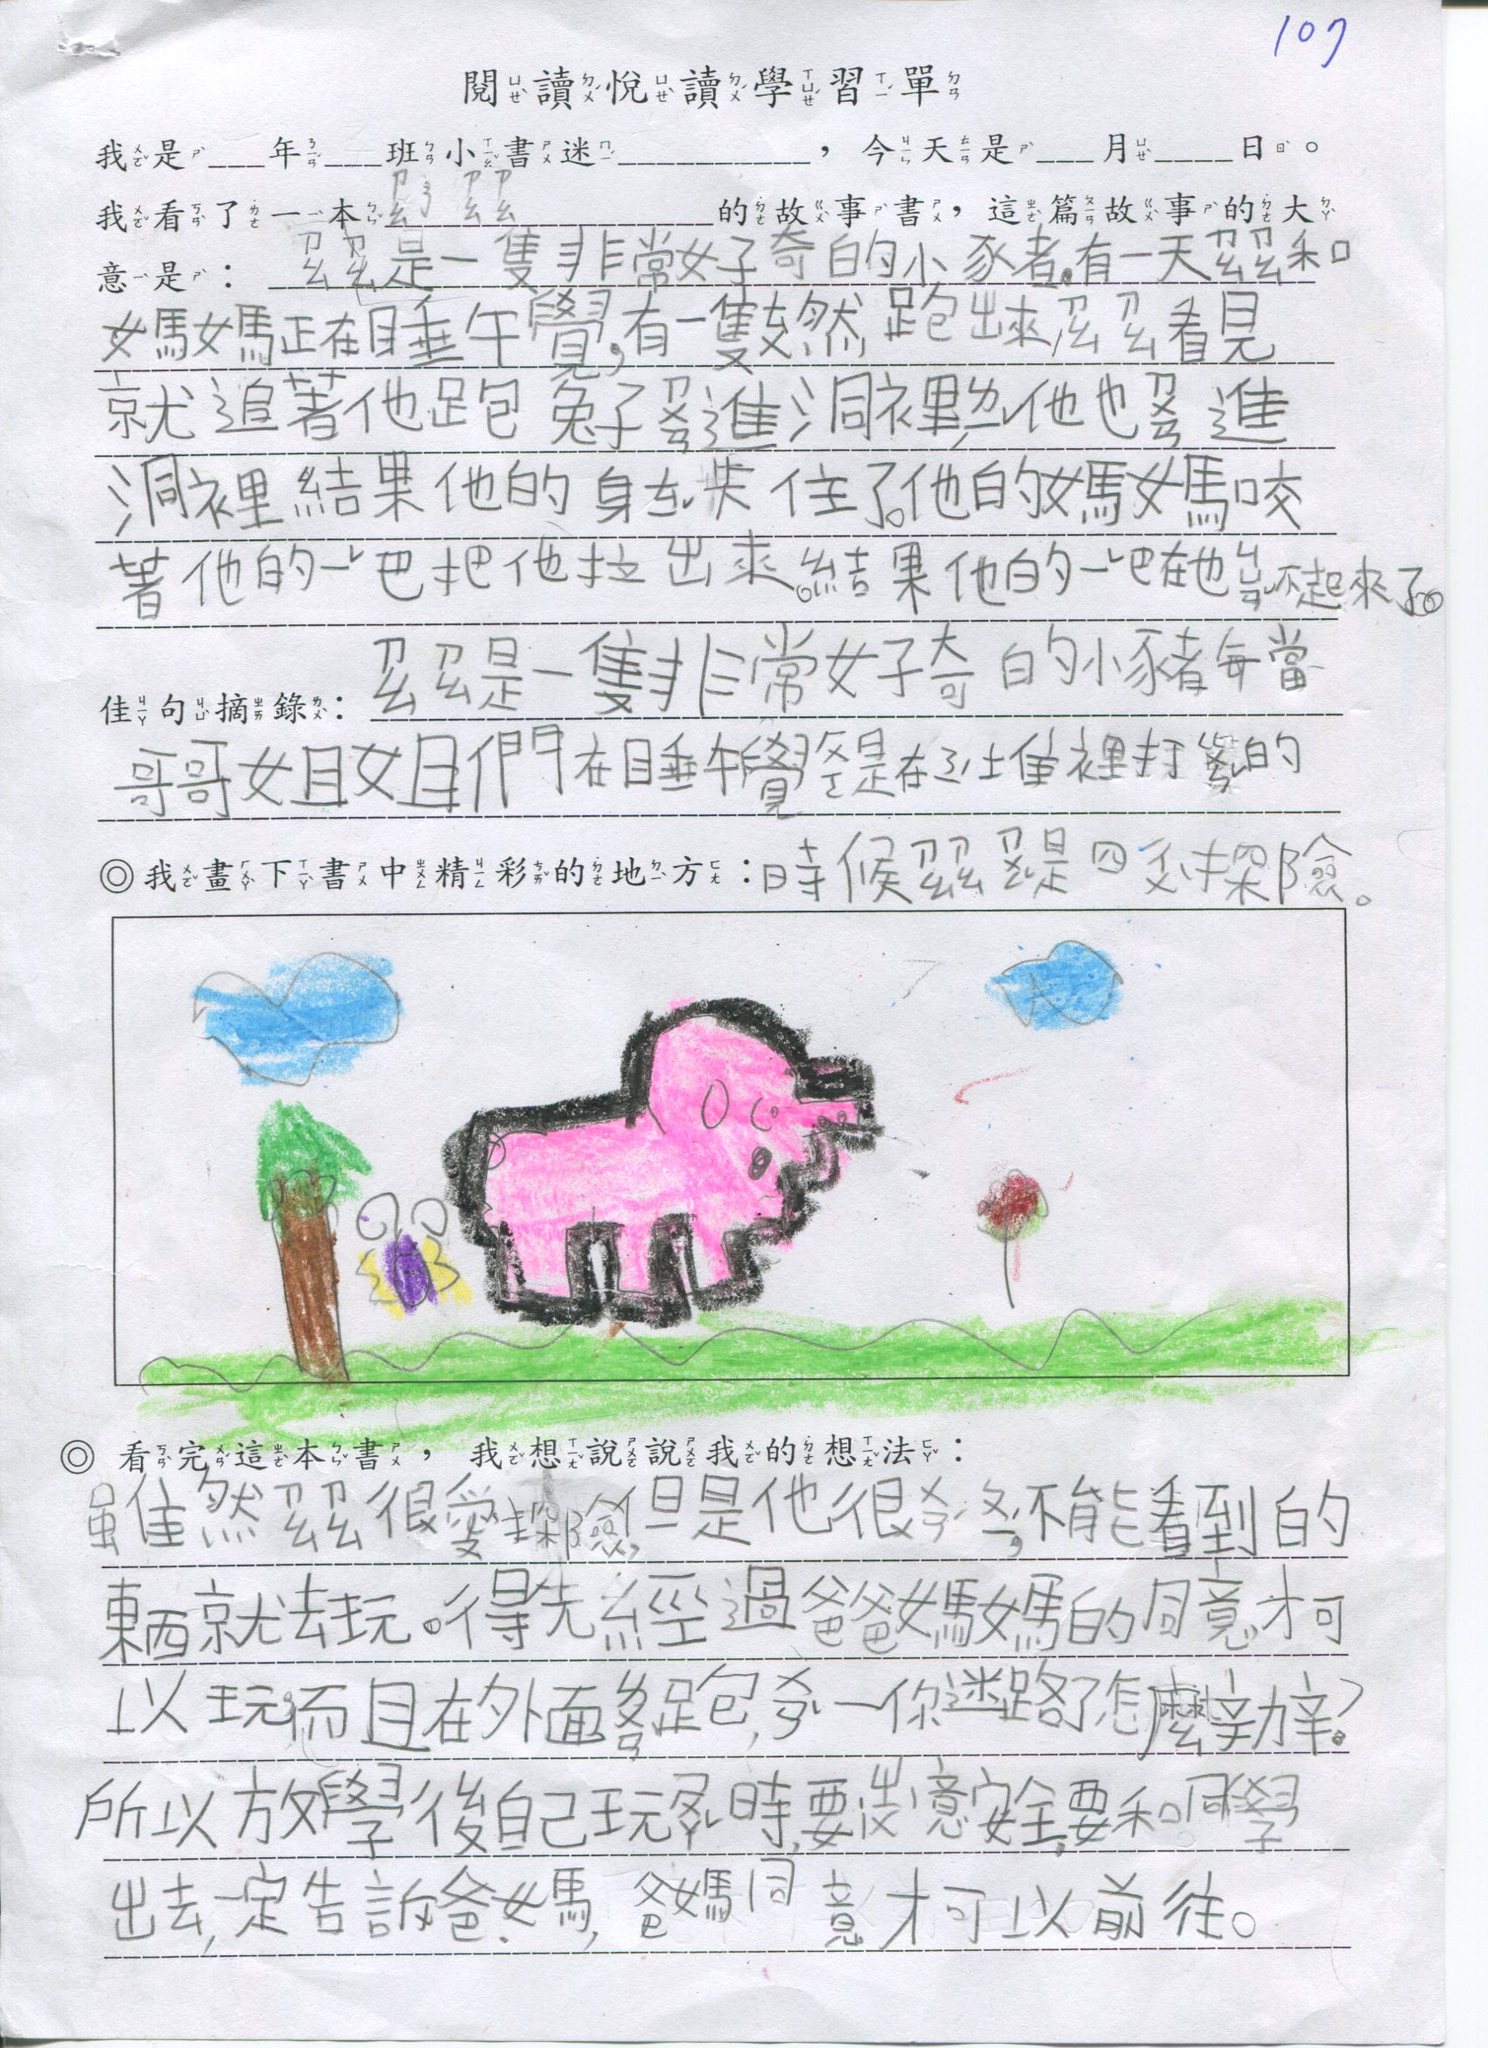 107
閱讀悅讀學習單
我是___年___班小書迷__________，今天是___月____日。
我看了一本ㄋㄠˊㄋㄠ的故事書，這篇故事的大
意是：ㄋㄠㄋㄠ是一隻非常好奇的小豬。有一天ㄋㄠㄋㄠ和
媽媽正在睡午覺，有一隻ㄊㄨ然跑出來ㄋㄠㄋㄠ看見
就追著他跑兔子ㄗㄨㄢ進洞裡ㄋㄠ他也ㄗㄨㄢ進
洞裡結果他的身ㄊㄧˇ卡住了。他的媽媽咬
著他的ㄧˇ巴把他拉出來。結果他的ㄧˇ吧在也ㄐㄩㄢ不起來了。
佳句摘錄：ㄋㄠㄋㄠ是一隻非常好奇的小豬每當
哥哥姐姐們在睡午覺 是在 土堆裡打 的
◎我畫下書中精彩的地方：時候ㄋㄠㄋㄠ 是四ㄔㄨˋ探險。
◎看完這本書，我想說說我的想法：
雖然ㄋㄠㄋㄠ很愛探險，但是他很 ，不能看到的
東西就去玩。得先經過爸爸媽媽的同意才可
以玩，而且在外面 跑，ㄨㄢˋ一你迷路了怎麼辦？
所以放學後自己玩ㄕㄨㄚˇ時，要注意安全，要和同學
出去，一定告訴爸媽，爸媽同意才可以前往。